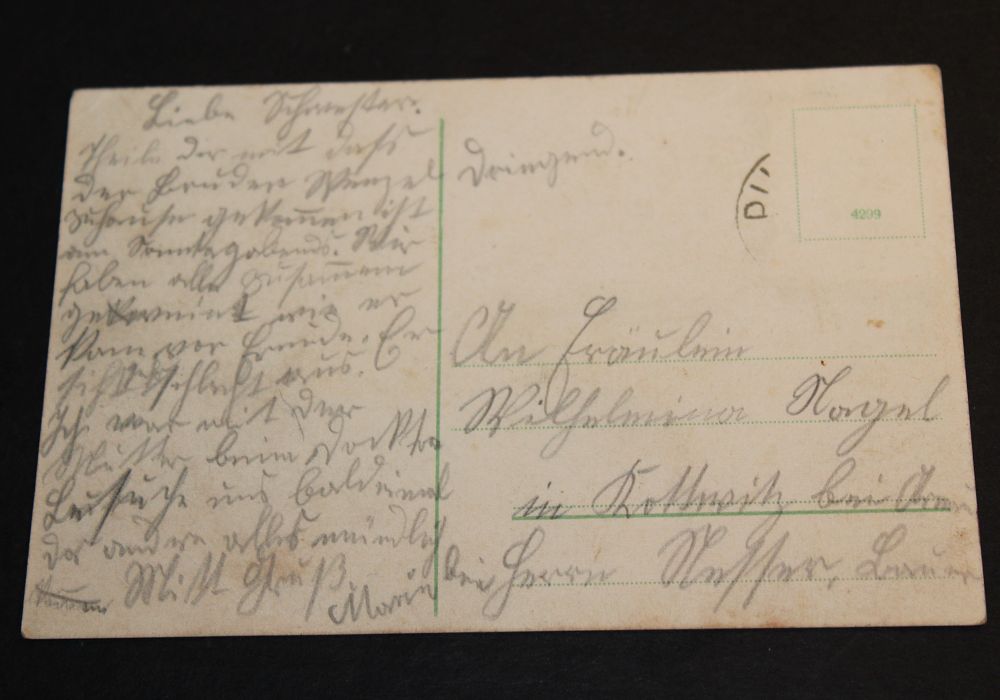 Liebe Schwester.
Theile dir mit daß
der Bruder Wenzel
zuhause gekommen ist
am Sonntagabend. Wir
haben alle zusammen
geweint wie er
kam vor Freude. Er
sieht schlecht aus.
Ich war mit der
Mutter beim Docktor
Besuche uns baldeinmal
das andre alles mündlich
Mitt Gruß
Marie
Dringend.
4299
An Fräulein
Wilhelmina Nagel
in Kottwitz bei
bei Herrn Bauer